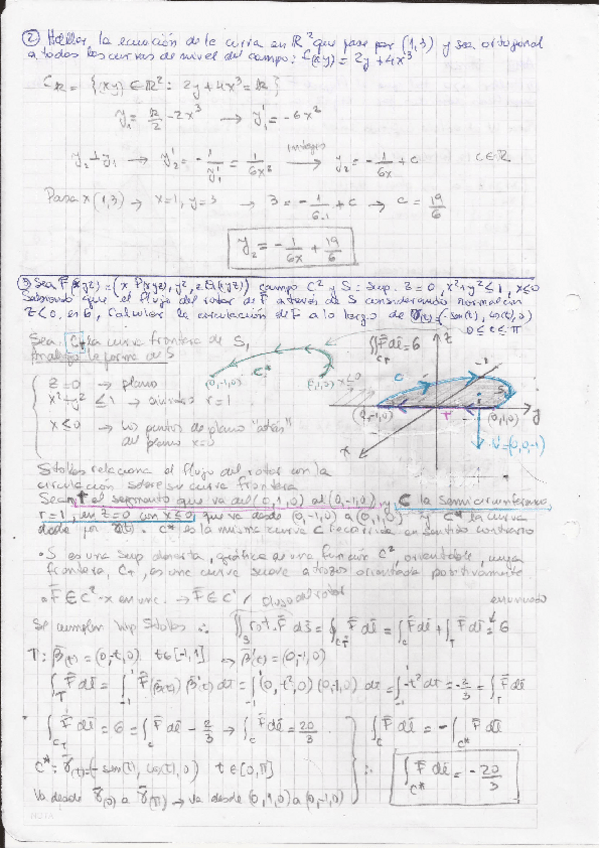 ② Hallar la ecuación de la curva en ℝ² que pase por (1,3) y sea ortogonal
a todas las curvas de nivel del campo: f(xy) = 2y + 4x³
C_k = {(xy) ∈ ℝ²: 2y + 4x³ = k}
y₁ = k/2 - 2x³ → y₁' = -6x²
y₂ ⊥ y₁ → y₂' = -1/y₁' = 1/6x² → integro y₂ = -1/6x + c c ∈ ℝ
Pasa x (1,3) → x=1, y=3 → 3 = -1/6·1 + c → c = 19/6
y₂ = -1/6x + 19/6
③ Sea F(xyz) = (x P(xyz), y², z Q(xyz)) campo C² y S = sup. z=0, x²+y² ≤ 1, x ≤ 0
Sabiendo que el flujo del rotor de F a través de S considerando normal con
z<0, es 6, calcular la circulación de F a lo largo de γ(t) = (-sen(t), cos(t), 0)
0 ≤ t ≤ π
Sea C_T la curva frontera de S,
Analizo la forma de S
C*
(0,-1,0) (0,1,0)
∬ F dl = 6
C_T
z
x≤0
C
-1
S
(0,-1,0) T (0,1,0) y
x
n = (0,0,-1)
z = 0 → plano
x²+y² ≤ 1 → r = 1
x ≤ 0 → los puntos de plano "atrás"
del plano x=0
Stokes relaciona el flujo del rotor con la
circulación sobre su curva frontera
Sean T el segmento que va del (0,1,0) al (0,-1,0) y C la semicircunferencia
r=1, en z=0 con x≤0 que va desde (0,-1,0) a (0,1,0) y C* la curva
dada por γ(t). C* es la misma curva C recorrida en sentido contrario
• S es una sup abierta, gráfica de una función C², orientable, cuya
frontera, C_T, es una curva suave a trozos orientada positivamente
• F ∈ C² x enunc. → F ∈ C¹ / flujo del rotor enunciado
Se cumplen hip Stokes ∴ ∬_S rot. F dS = ∮_C_T F dl = ∫_C F dl + ∫_T F dl = 6
T: β(t) = (0,-t,0) t ∈ [-1,1] → β'(t) = (0,-1,0)
∫_T F dl = ∫₋₁¹ F(β(t)) β'(t) dt = ∫₋₁¹ (0, t², 0) (0,-1,0) dt = ∫₋₁¹ -t² dt = -2/3 = ∫_T F dl
∫_C_T F dl = 6 = ∫_C F dl - 2/3 → ∫_C F dl = 20/3 ∫_C F dl = -∫_C* F dl
C*: γ(t) = (-sen(t), cos(t), 0) t ∈ [0,π] ∴ ∫_C* F dl = -20/3
Va desde γ(0) a γ(π) → va desde (0,1,0) a (0,-1,0)